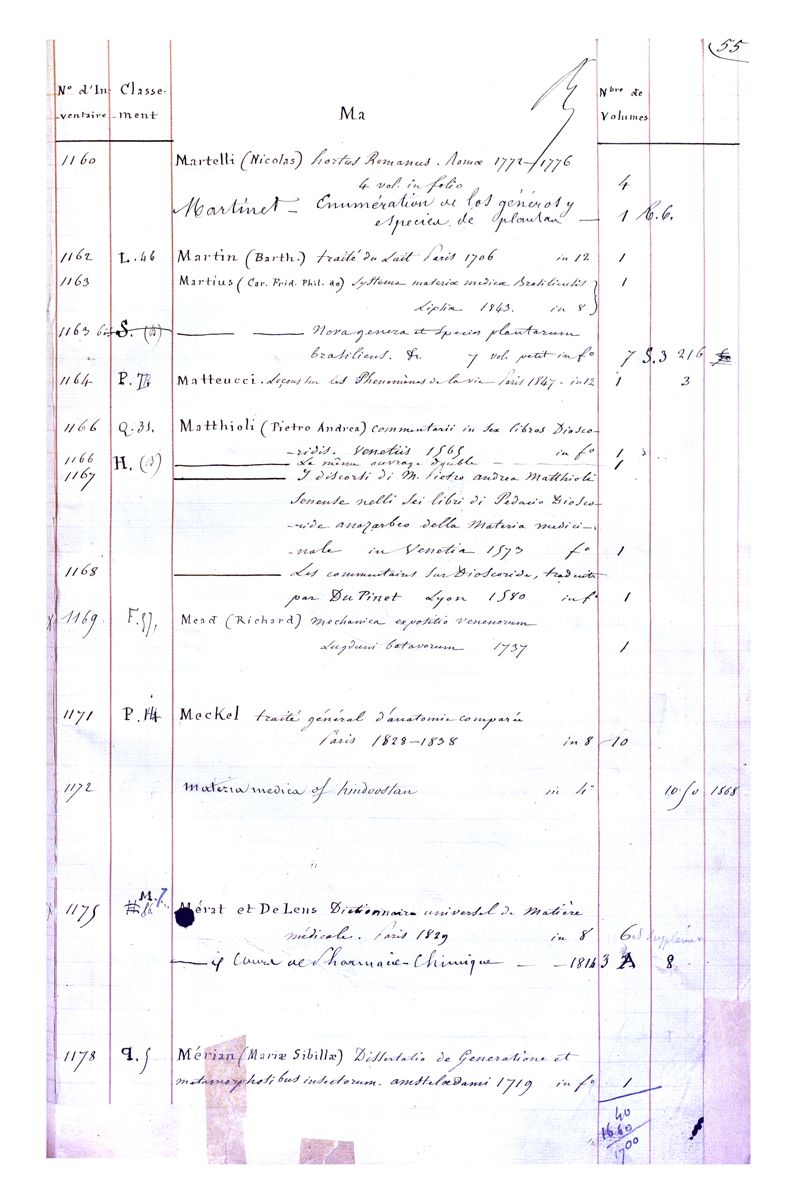 55
N° d'In- Classe- Nbre de
ventaire ment Ma Volumes
1160 Martelli (Nicolas) hortus Romanus. Romæ 1772–1776
4 vol. in folio 4
Martinet – Enumération de los généros y
especies de plantas — 1 R.6.
1162 L.46 Martin (Barth.) traité du Lait Paris 1706 in 12 1
1163 Martius (Car. Frid. Phil. de) Systema materiæ medicæ Brasiliensis 1
Lipsiæ 1843. in 8
1163 bis S. — — Nova genera et Species plantarum
brasiliens. &. 7 vol. petit in f° 7 S.3 216
1164 P. Matteucci. Leçons sur les Phenomènes de la vie Paris 1847. in 12 1 3
1166 Q.31. Matthioli (Pietro Andrea) commentarii in sex libros Diosco-
-ridis. Venetiis 1565 in f° 1
1166 H. — Le même ouvrage double — 1
1167 — I discorsi di M. Pietro andrea Matthioli
Senense nelli Sei libri di Pedacio Diosco-
-ride anazarbeo della Materia medici-
-nale in Venetia 1573 f° 1
1168 — Les commentaires sur Dioscoride, traduits
par Du Pinet Lyon 1580 in f° 1
1169 F.57, Mead (Richard) mechanica expositio venenorum
Lugduni batavorum 1737 1
1171 P.14 Meckel traité général d'anatomie comparée
Paris 1828–1838 in 8 10
1172 materia medica of hindoostan in 4° 10.50 1868
M.7.
1175 Mérat et De Lens Dictionnaire universel de Matière
médicale. Paris 1829 in 8 6 et Supplément
— Cours de Pharmacie-Chimique — 1814 3 A 8
1178 Q.5 Mérian (Mariæ Sibillæ) Dissertatio de Generatione et
metamorphosibus insectorum. amstelædami 1719 in f° 1
40
1660
1700